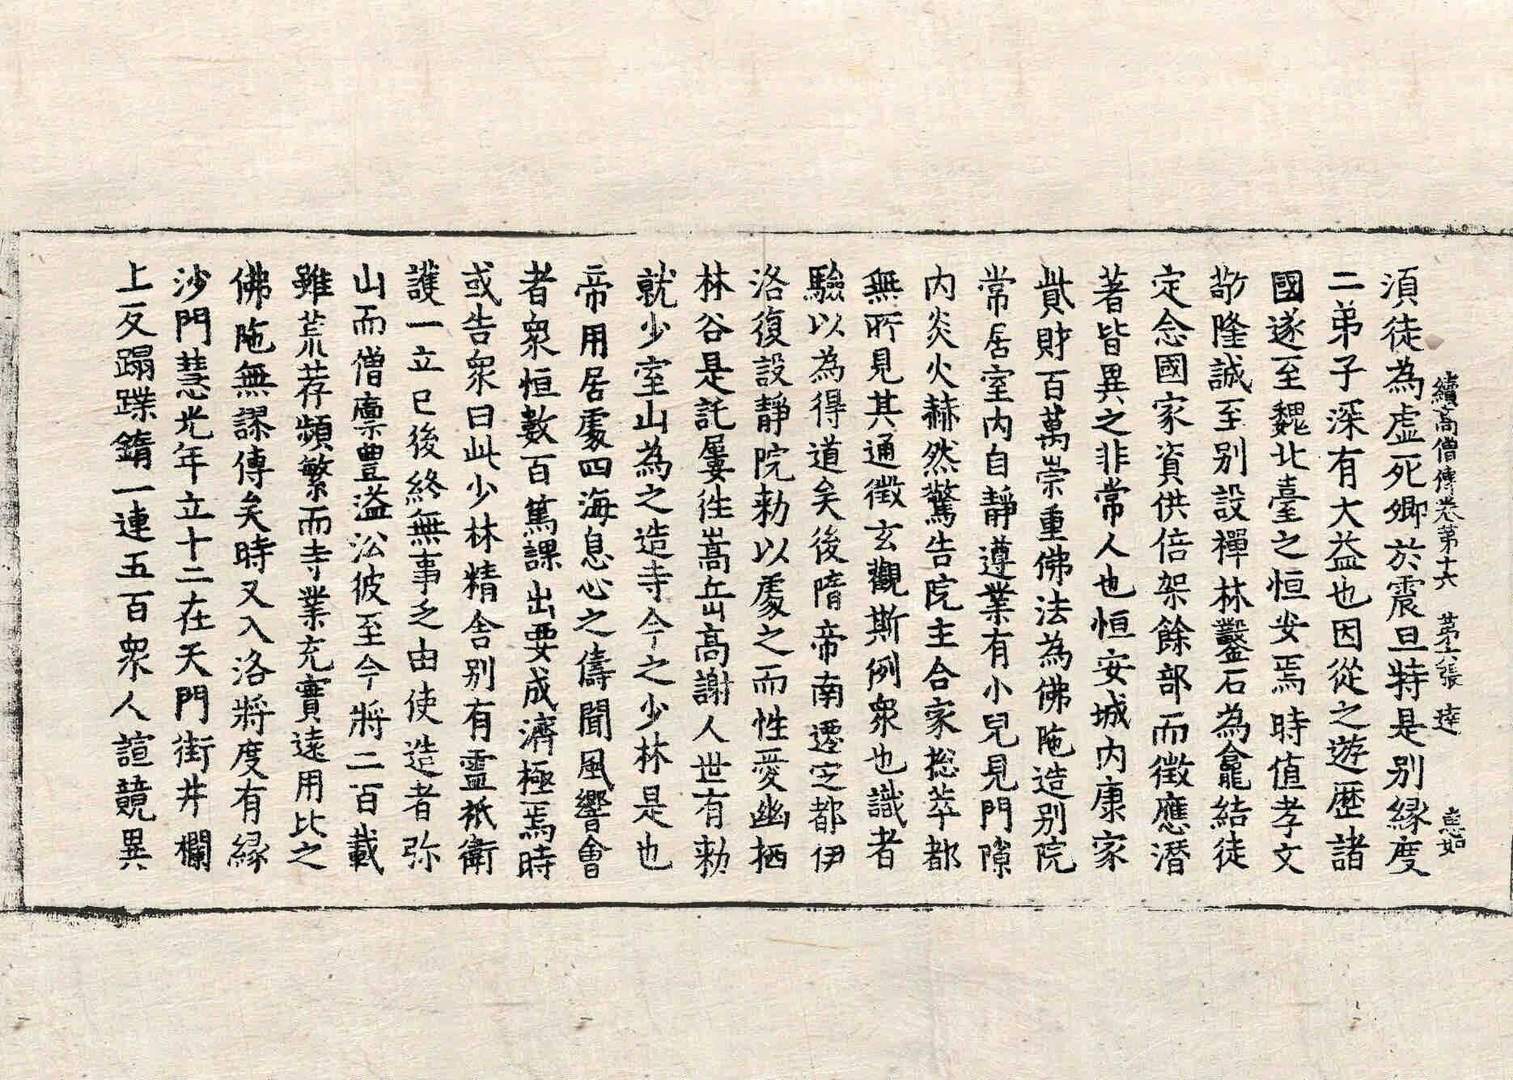 續高僧傳卷第十六 第六張 達 惠如
須徒為虛死卿於震旦特是別緣度
二弟子深有大益也因從之遊歷諸
國遂至魏北臺之恒安焉時值孝文
敬隆誠至別設禪林鑿石為龕結徒
定念國家資供倍架餘部而徵應潛
著皆異之非常人也恒安城內康家
貲財百萬崇重佛法為佛陁造別院
常居室內自靜遵業有小兒見門隙
內炎火赫然驚告院主合家捴萃都
無所見其通徵玄觀斯例衆也識者
驗以為得道矣後隋帝南遷定都伊
洛復設靜院勑以處之而性愛幽栖
林谷是託屢徃嵩岳高謝人世有勑
就少室山為之造寺今之少林是也
帝用居處四海息心之儔聞風響會
者衆恒數百篤課出要成濟極焉時
或告衆曰此少林精舍別有靈祇衛
護一立已後終無事乏由使造者弥
山而僧廪豊溢㳂彼至今將二百載
雖荒荐頻繁而寺業充實遠用比之
佛陁無謬傳矣時又入洛將度有緣
沙門慧光年立十二在天門街井欄
上反蹋蹀䥘一連五百衆人諠競異